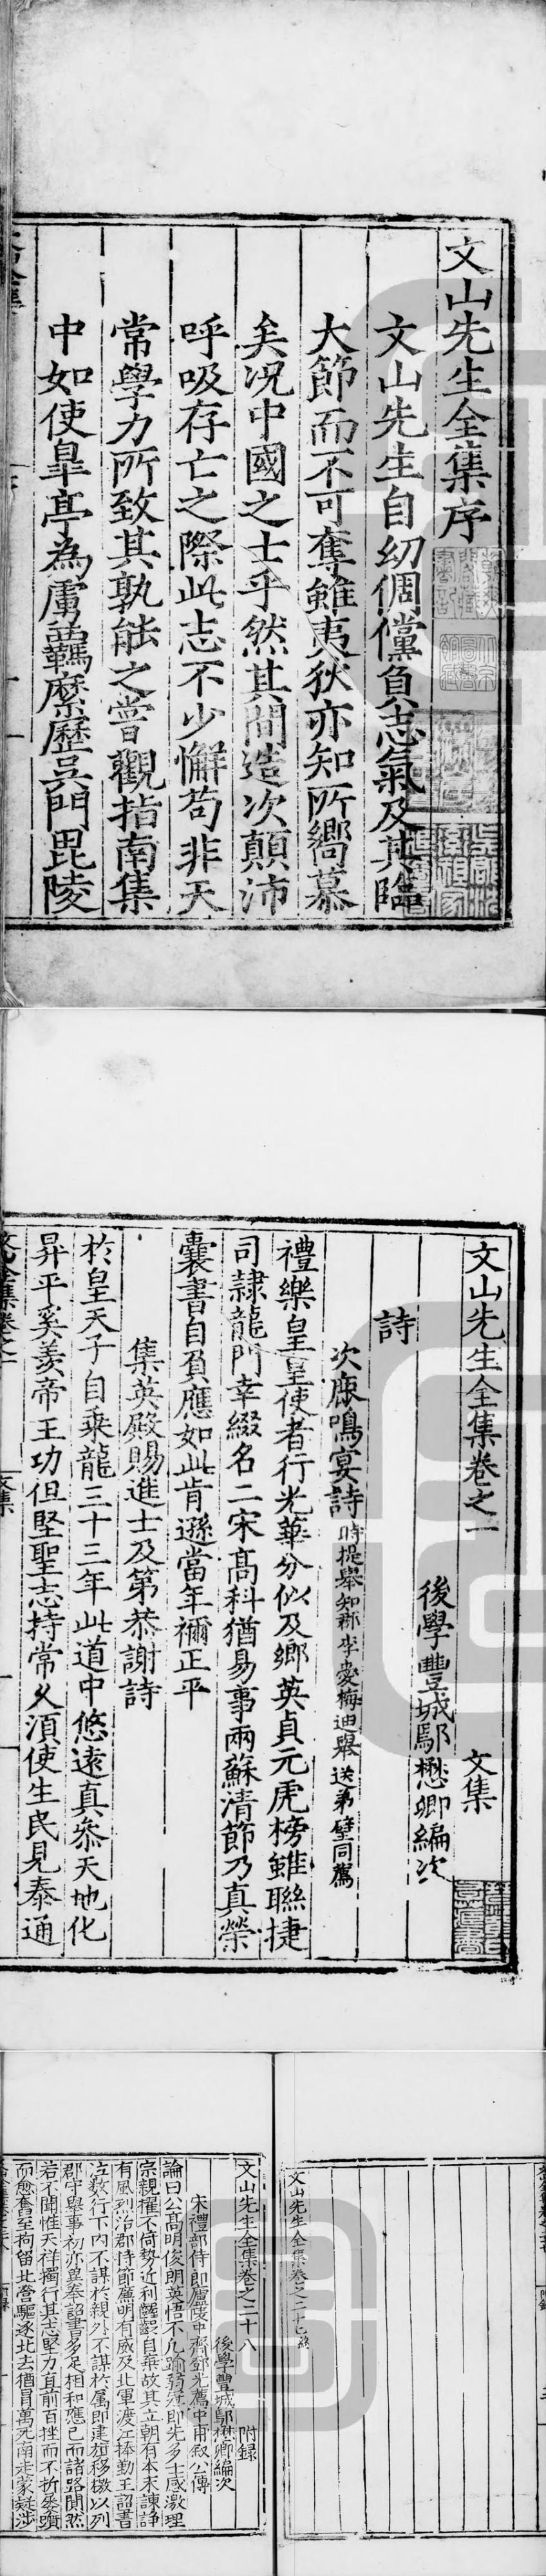 文山先生全集序
文山先生自幼倜儻負志氣及其臨
大節而不可奪雖夷狄亦知所嚮慕
矣況中國之士乎然其間造次顛沛
呼吸存亡之際此志不少懈苟非天
常學力所致其孰能之嘗觀指南集
中如使臯亭為虜羈縻歷吳門毘陵
文山先生全集卷之一
文集
後學豐城鄢懋卿編次
詩
次鹿鳴宴詩時提舉知郡李愛梅迪舉送弟璧同薦
禮樂皇皇使者行光華分似及鄉英貞元虎榜雖聯捷
司隸龍門幸綴名二宋高科猶易事兩蘇清節乃真榮
囊書自負應如此肯遜當年禰正平
集英殿賜進士及第恭謝詩
於皇天子自乘龍三十三年此道中悠遠真參天地化
昇平奚羨帝王功但堅聖志持常久須使生民見泰通
文山先生全集卷之一
文集
文山先生全集卷之二十七終
文山先生全集卷之二十八
附錄
後學豐城鄢懋卿編次
宋禮部侍郎廬陵中齋鄧光薦中甫叙公傳
論曰公高明俊朗英悟不凡踰弱冠即先多士感激理
宗親擢不倚勢近利齷齪自棄故其立朝有本末諫諍
有風烈治郡持節廉明有威及北軍渡江捧勤王詔書
泣數行下內不謀於親外不謀於屬即建旗移檄以列
郡守舉事初亦異奉詔書多足相和應已而諸路閴然
若不聞惟天祥獨行其志堅力直前百挫而不折屢躓
而愈奮至拘留北營驅逐北去猶冒萬死南走蒙疑涉